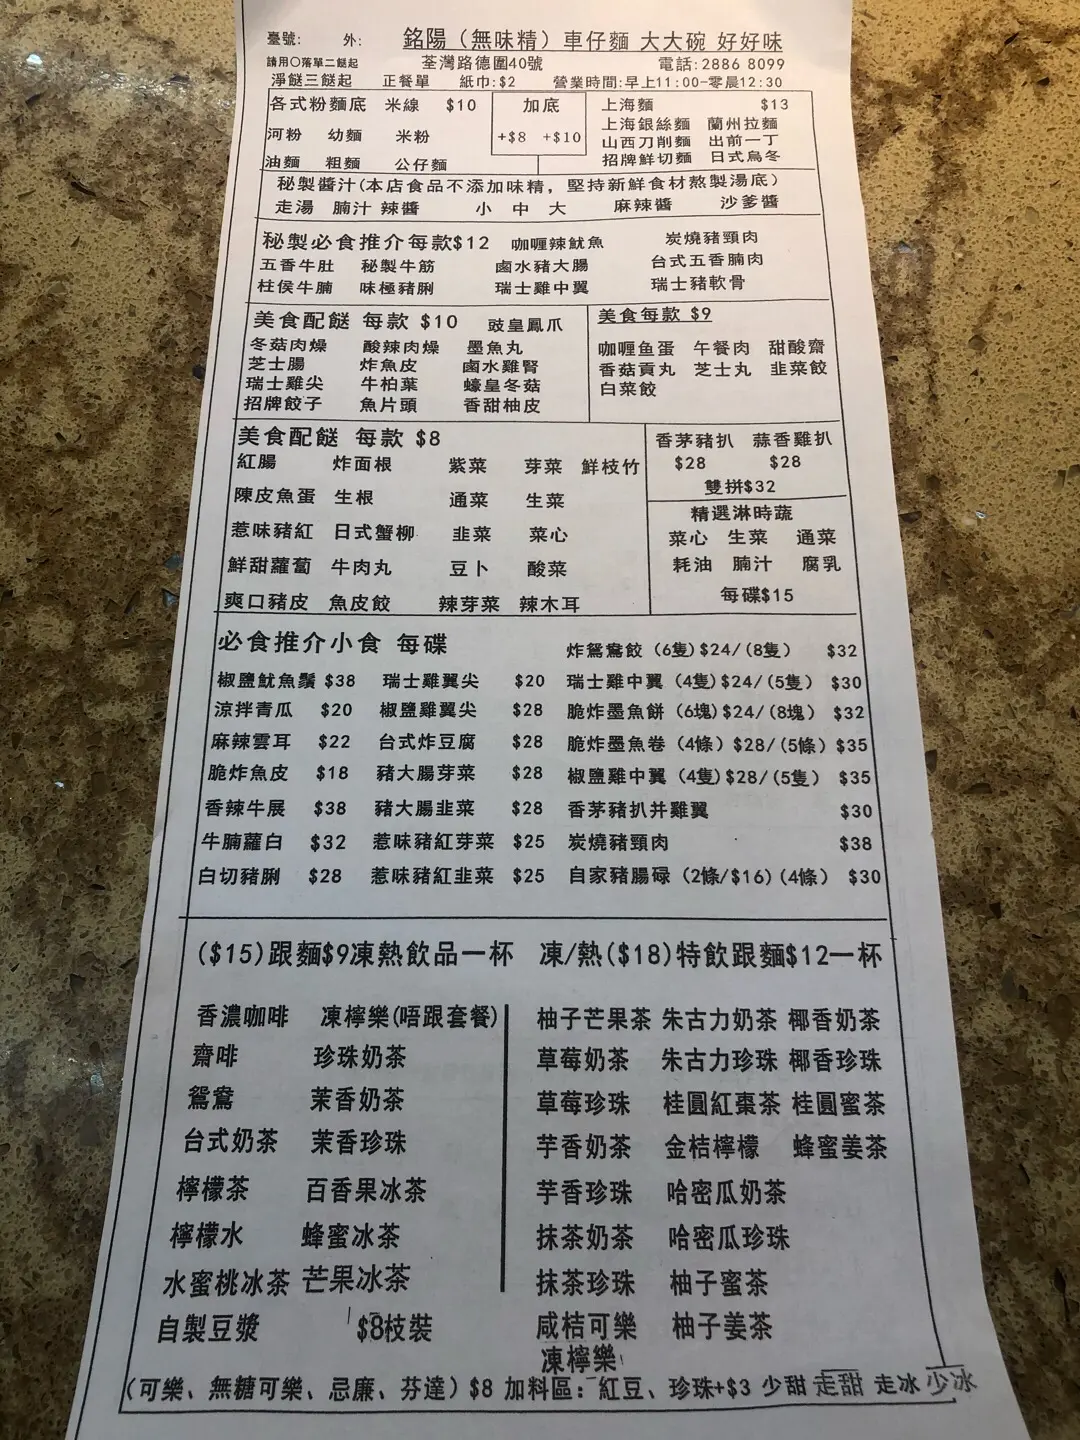 臺號: 外: 銘陽（無味精）車仔麵 大大碗 好好味
請用〇落單二餸起 荃灣路德圍40號 電話:2886 8099
淨餸三餸起 正餐單 紙巾:$2 營業時間:早上11:00-零晨12:30
各式粉麵底 米線 $10 加底 上海麵 $13
上海銀絲麵 蘭州拉麵
河粉 幼麵 米粉 +$8 +$10 山西刀削麵 出前一丁
油麵 粗麵 公仔麵 招牌鮮切麵 日式烏冬
秘製醬汁(本店食品不添加味精，堅持新鮮食材熬製湯底)
走湯 腩汁 辣醬 小 中 大 麻辣醬 沙爹醬
秘製必食推介每款$12 咖喱辣魷魚 炭燒豬頸肉
五香牛肚 秘製牛筋 鹵水豬大腸 台式五香腩肉
柱侯牛腩 味極豬脷 瑞士雞中翼 瑞士豬軟骨
美食配餸 每款 $10 豉皇鳳爪
冬菇肉燥 酸辣肉燥 墨魚丸
芝士腸 炸魚皮 鹵水雞腎
瑞士雞尖 牛柏葉 蠔皇冬菇
招牌餃子 魚片頭 香甜柚皮
美食每款 $9
咖喱鱼蛋 午餐肉 甜酸齋
香菇貢丸 芝士丸 韭菜餃
白菜餃
美食配餸 每款 $8
紅腸 炸面根 紫菜 芽菜 鮮枝竹
陳皮魚蛋 生根 通菜 生菜
惹味豬紅 日式蟹柳 韭菜 菜心
鮮甜蘿蔔 牛肉丸 豆卜 酸菜
爽口豬皮 魚皮餃 辣芽菜 辣木耳
香茅豬扒 蒜香雞扒
$28 $28
雙拼$32
精選淋時蔬
菜心 生菜 通菜
耗油 腩汁 腐乳
每碟$15
必食推介小食 每碟 炸鴛鴦餃 (6隻)$24/(8隻) $32
椒鹽魷魚鬚 $38 瑞士雞翼尖 $20 瑞士雞中翼 (4隻)$24/(5隻) $30
涼拌青瓜 $20 椒鹽雞翼尖 $28 脆炸墨魚餅 (6塊)$24/(8塊) $32
麻辣雲耳 $22 台式炸豆腐 $28 脆炸墨魚卷 (4條) $28/(5條) $35
脆炸魚皮 $18 豬大腸芽菜 $28 椒鹽雞中翼 (4隻)$28/(5隻) $35
香辣牛展 $38 豬大腸韭菜 $28 香茅豬扒并雞翼 $30
牛腩蘿白 $32 惹味豬紅芽菜 $25 炭燒豬頸肉 $38
白切豬脷 $28 惹味豬紅韭菜 $25 自家豬腸碌 (2條/$16) (4條) $30
($15)跟麵$9凍熱飲品一杯 凍/熱($18)特飲跟麵$12一杯
香濃咖啡 凍檸樂(唔跟套餐) 柚子芒果茶 朱古力奶茶 椰香奶茶
齋啡 珍珠奶茶 草莓奶茶 朱古力珍珠 椰香珍珠
鴛鴦 茉香奶茶 草莓珍珠 桂圓紅棗茶 桂圓蜜茶
台式奶茶 茉香珍珠 芋香奶茶 金桔檸檬 蜂蜜姜茶
檸檬茶 百香果冰茶 芋香珍珠 哈密瓜奶茶
檸檬水 蜂蜜冰茶 抹茶奶茶 哈密瓜珍珠
水蜜桃冰茶 芒果冰茶 抹茶珍珠 柚子蜜茶
自製豆漿 $8枝裝 咸桔可樂 柚子姜茶
凍檸樂
(可樂、無糖可樂、忌廉、芬達) $8 加料區: 紅豆、珍珠+$3 少甜 走甜 走冰 少冰